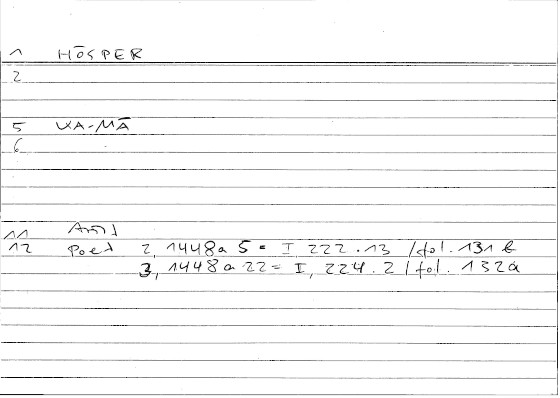 1 HŌSPER
2
5 KA-MĀ
6
11 Arist
12 Poet 2, 1448a 5 = I, 222.13 / fol. 131 b
3, 1448a 22 = I, 224.2 / fol. 132a